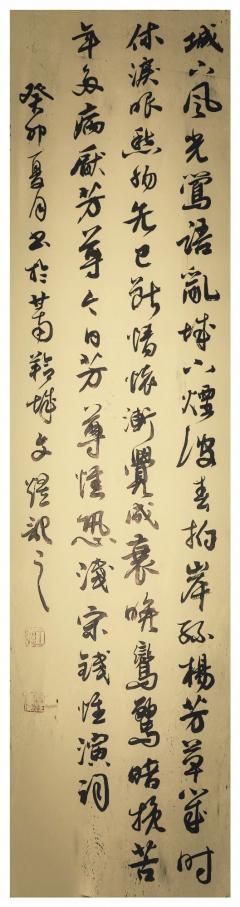 城上風光鶯語亂城下煙波春拍岸綠楊芳草幾時
休淚眼愁腸先已斷情懷漸覺成衰晚鸞驚暗換昔
年多病厭芳尊今日芳尊惟恐淺宋錢惟演詞
癸卯夏月書於甘南羚城文煜記之